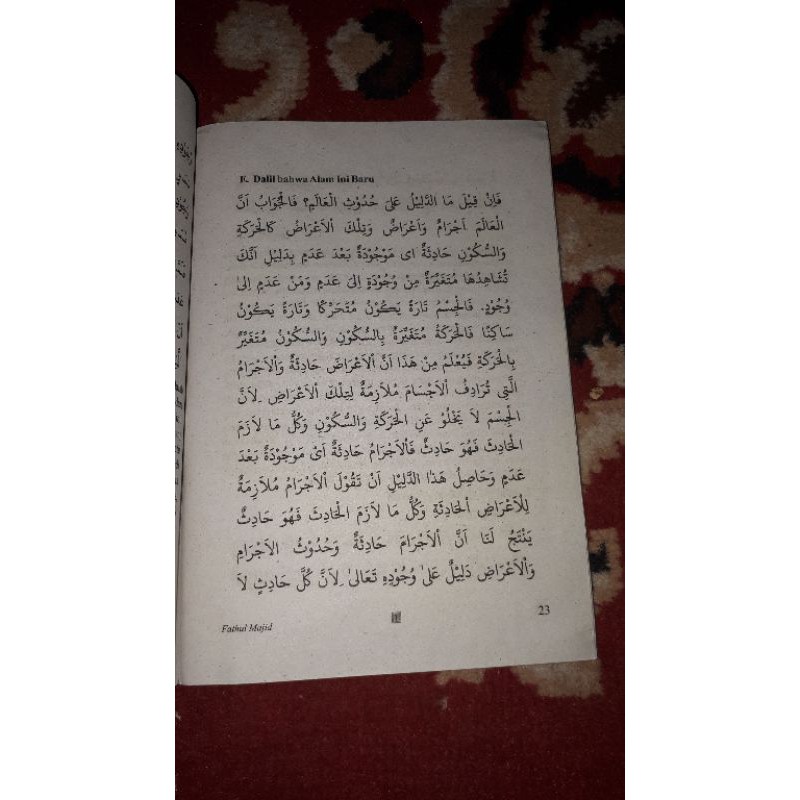 E. Dalil bahwa Alam ini Baru
فَاِنْ قِيْلَ مَا الدَّلِيْلُ عَلَىْ حُدُوْثِ الْعَالَمِ؟ فَالْجَوَابُ اَنَّ
الْعَالَمَ اَجْرَامٌ وَاَعْرَاضٌ وَتِلْكَ اْلاَعْرَاضُ كَالْحَرَكَةِ
وَالسُّكُوْنِ حَادِثَةٌ اى مَوْجُوْدَةٌ بَعْدَ عَدَمٍ بِدَلِيْلِ اَنَّكَ
تُشَاهِدُهَا مُتَغَيِّرَةً مِنْ وُجُوْدَةٍ اِلىَ عَدَمٍ وَمَنْ عَدَمٍ اِلىَ
وُجُوْدٍ. فَالْجِسْمُ تَارَةً يَكُوْنُ مُتَحَرِّكًا وَتَارَةً يَكُوْنُ
سَاكِنًا فَالْحَرَكَةُ مُتَغَيِّرَةٌ بِالسُّكُوْنِ وَالسُّكُوْنُ مُتَغَيِّرٌ
بِالْحَرَكَةِ فَيُعْلَمُ مِنْ هَذَا اَنَّ اْلاَعْرَاضَ حَادِثَةٌ وَاْلاَجْرَامُ
الَّتِى تُرَادِفُ اْلاَجْسَامَ مُلاَزِمَةٌ لِتِلْكَ اْلاَعْرَاضِ .لِاَنَّ
الْجِسْمَ لاَ يَخْلُوْ عَنِ الْحَرَكَةِ وَالسُّكُوْنِ وَكُلُّ مَا لاَزَمَ
الْحَادِثَ فَهُوَ حَادِثٌ فَاْلاَجْرَامُ حَادِثَةٌ اَىْ مَوْجُوْدَةٌ بَعْدَ
عَدَمٍ وَحَاصِلُ هَذَا الدَّلِيْلِ اَنْ تَقُوْلَ اْلاَجْرَامُ مُلاَزِمَةٌ
لِلْاَعْرَاضِ الْحَادِثَةِ وَكُلُّ مَا لاَزَمَ الْحَادِثَ فَهُوَ حَادِثٌ
يَنْتَجُ لَنَا اَنَّ اْلاَجْرَامَ حَادِثَةٌ وَحُدُوْثُ اْلاَجْرَامِ
وَاْلاَعْرَاضِ دَلِيْلٌ عَلىَ وُجُوْدِهِ تَعَالىَ .لِاَنَّ كُلَّ حَادِثٍ لاَ
Fathul Majid
23